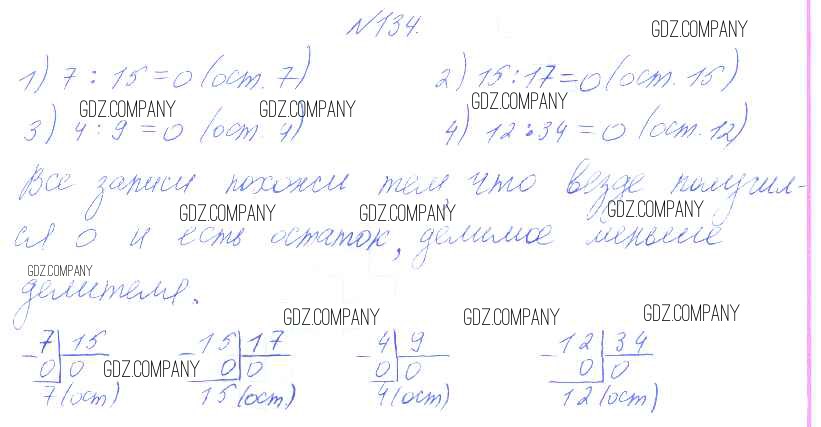 №134.
GDZ.COMPANY
1) 7 : 15 = 0 (ост. 7) 2) 15 : 17 = 0 (ост. 15)
GDZ.COMPANY GDZ.COMPANY GDZ.COMPANY
3) 4 : 9 = 0 (ост. 4) 4) 12 : 34 = 0 (ост. 12)
Все записи похожи тем, что везде получил-
GDZ.COMPANY GDZ.COMPANY GDZ.COMPANY
ся 0 и есть остаток, делимое меньше
GDZ.COMPANY
делителя.
GDZ.COMPANY GDZ.COMPANY GDZ.COMPANY
7 15 15 17 4 9 12 34
0 0 GDZ.COMPANY 0 0 0 0 0 0
7 (ост) 15 (ост) 4 (ост) 12 (ост)